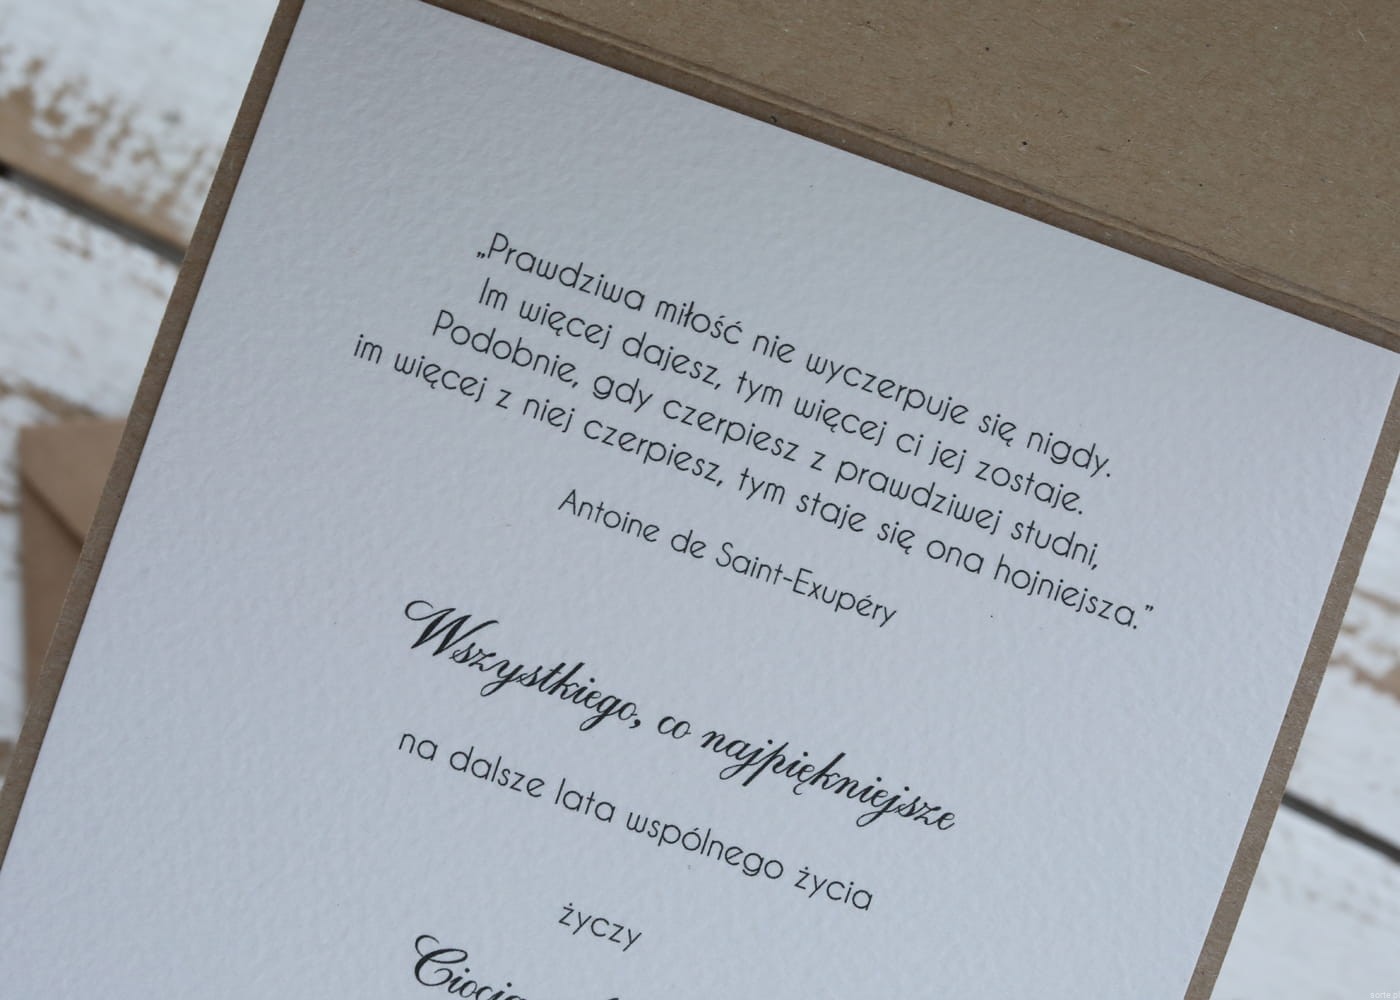 „Prawdziwa miłość nie wyczerpuje się nigdy.
Im więcej dajesz, tym więcej ci jej zostaje.
Podobnie, gdy czerpiesz z prawdziwej studni,
im więcej z niej czerpiesz, tym staje się ona hojniejsza.”
Antoine de Saint-Exupéry
Wszystkiego, co najpiękniejsze
na dalsze lata wspólnego życia
życzy
Ciocia